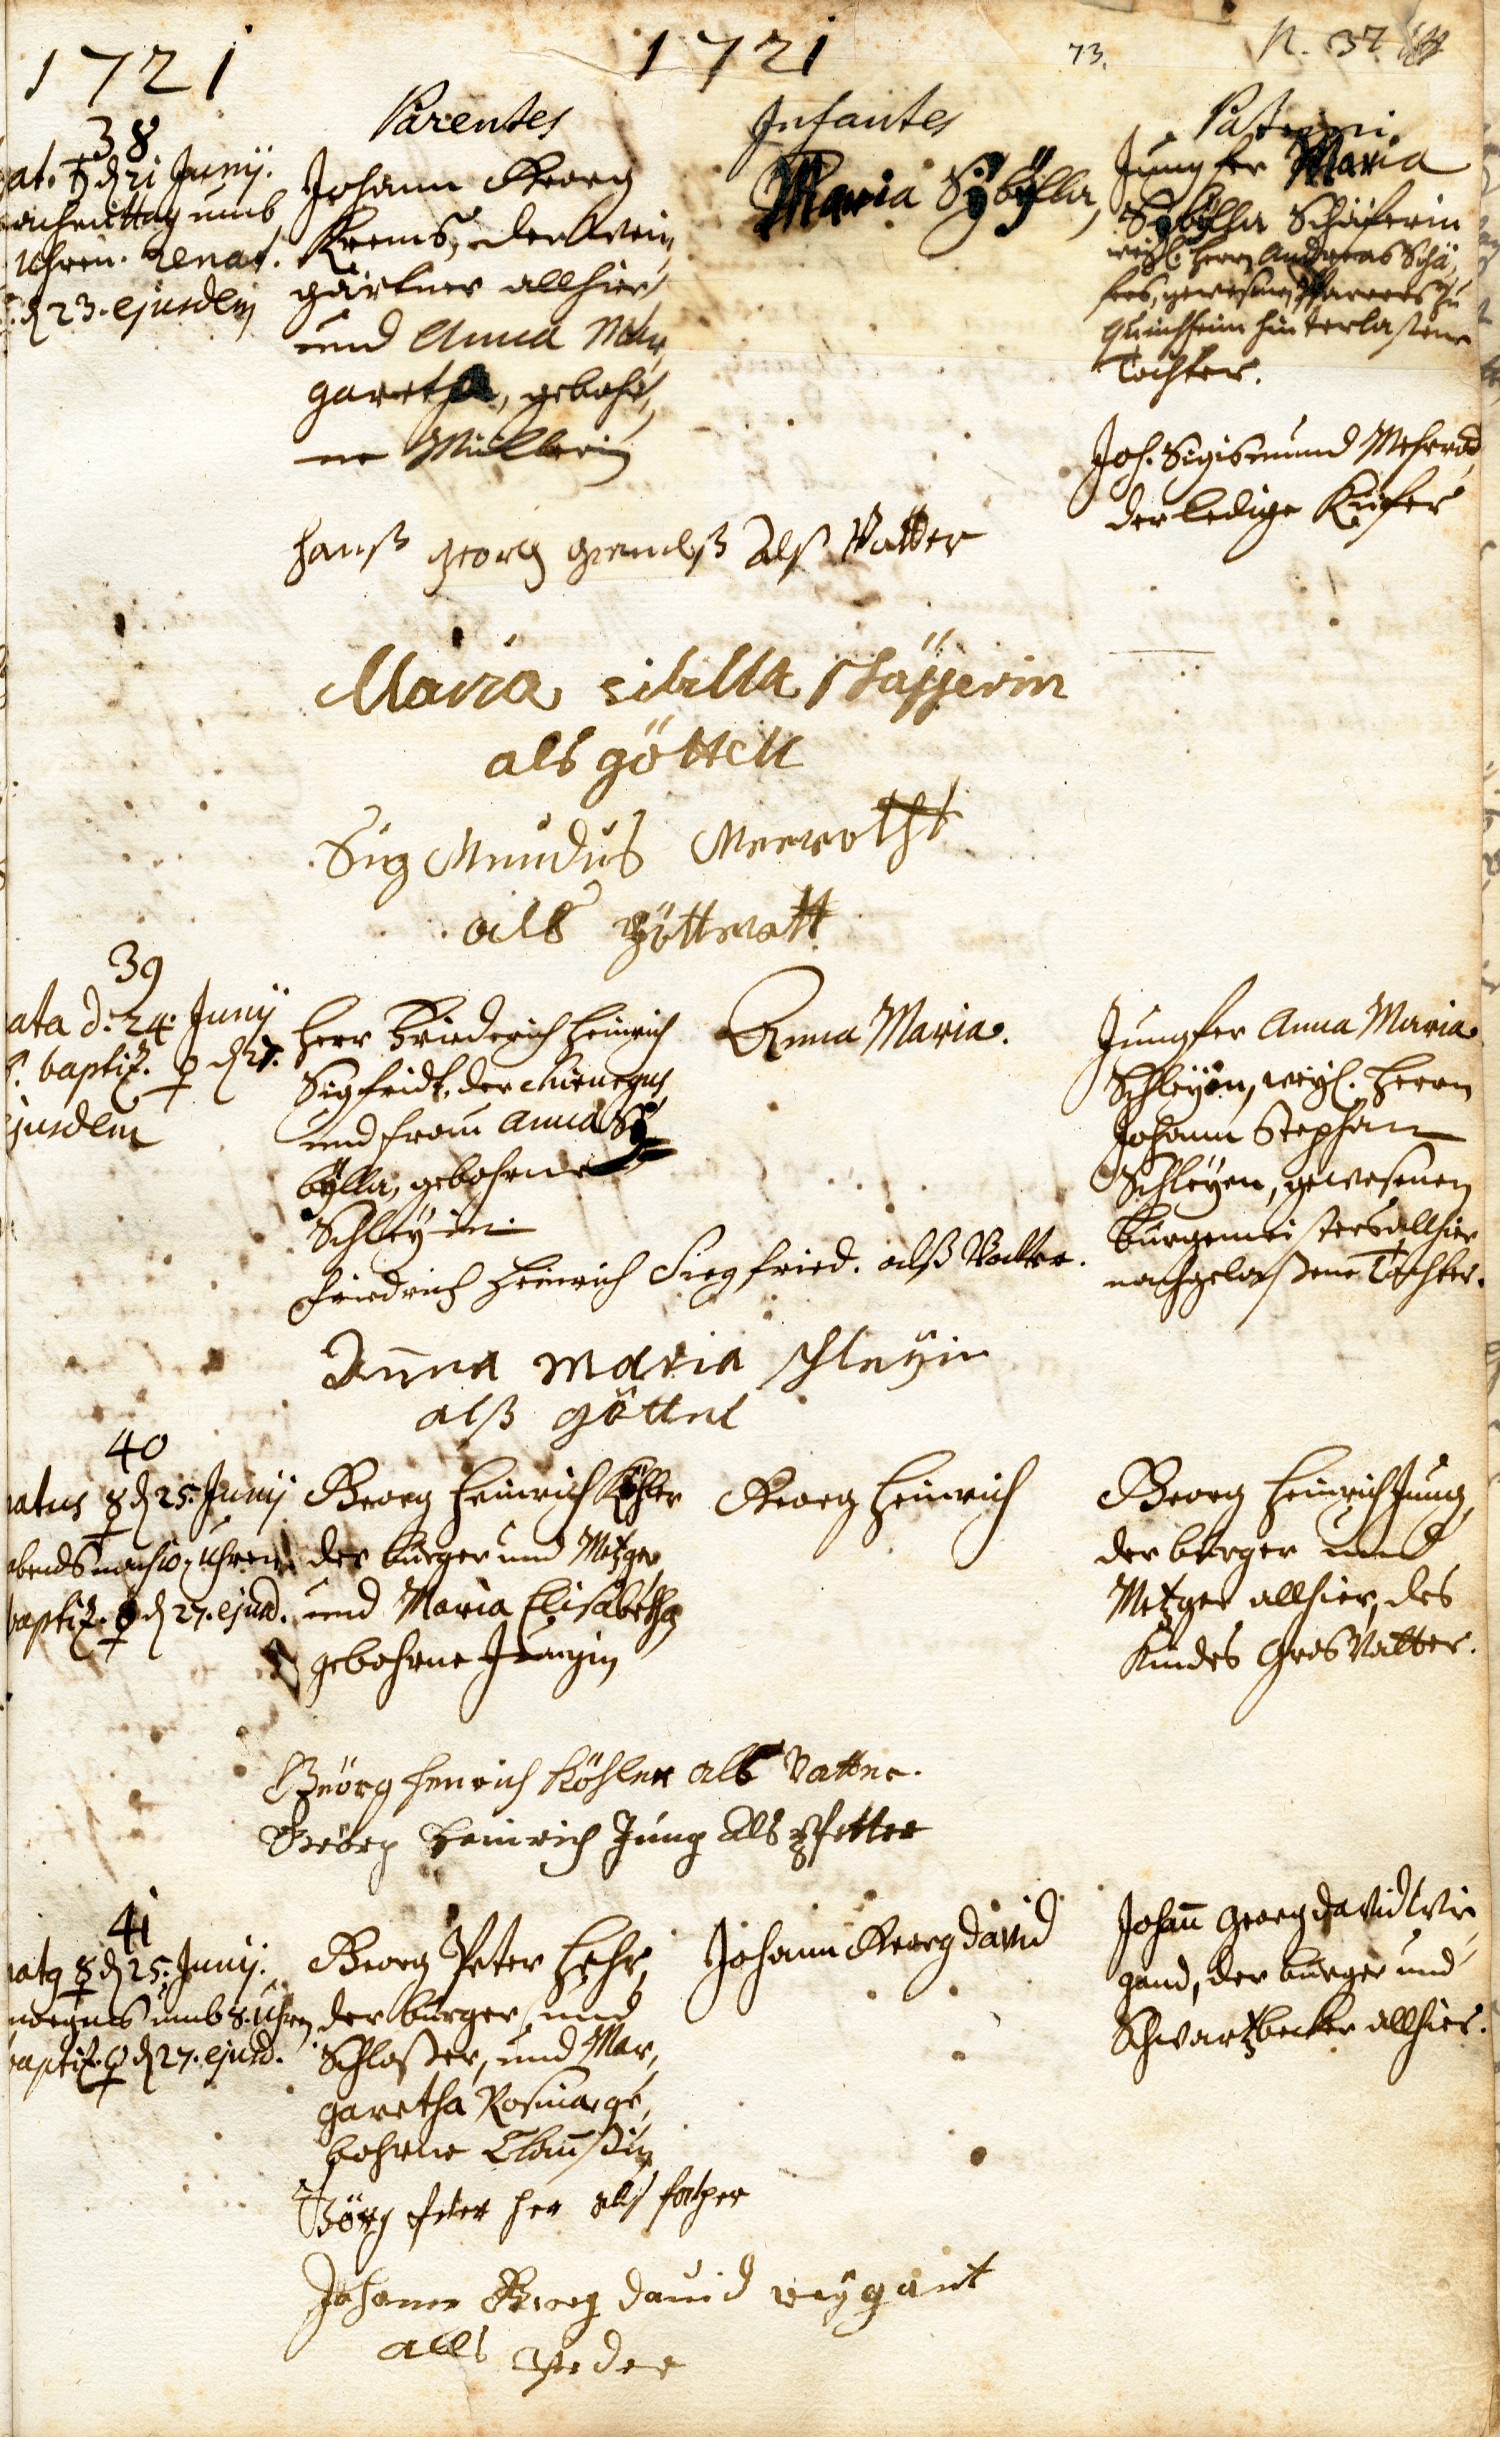 1721
1721
73.
N. 37
Parentes
Infantes
Patrini.
38
at. ♄ d 21 Junij.
achmittag umb
Uhren. renat.
d 23. ejusdem
Johann Georg
Krems, der Wein,
gärtner allhier,
und Anna Mar,
garetha, gebohr,
ne Müllerin
Maria Sÿbÿlla,
Jungfer Maria
Sÿbÿlla Schäferin
weyl. Herrn Andreas Schä,
fers, gewesenen Pfarrers zu
hinterlaßene
Tochter.
Joh. Sigismund Mehrod
der ledige Küfer
Hanß georg gremß Alß Vatter
Maria sibilla schäfferin
als göttell
Sigmundus Meeroth
als göttvatt
39
ata d. 24. Junij
baptiz. ♀ d 27.
jusdem
Herr Friederich Heinrich
Sigfridt, der Chirurgus
und Frau Anna Sÿ
bÿlla, gebohrne
Schleÿin
Anna Maria.
Jungfer Anna Maria
Schleÿin, weyl. Herrn
Johann Stephan
Schleÿen, gewesenen
Burgemeisters allhier
nachgelaßene Tochter.
Friedrich Heinrich Siegfried. alß Vatter.
Anna Maria schleÿin
alß göttel
40
natus ☿ d 25. Junij
abends nach 10, Uhren.
baptiz. ♀ d 27. ejusd.
Georg Heinrich Köhler
der burger und Metzger
und Maria Elisabetha
gebohrne Jungin
Georg Heinrich
Georg Heinrich Jung,
der burger und
Metzger allhier, des
Kindes Gros Vatter.
Geörg Henrich Köhler als Vatter.
Geörg Heinrich Jung als Pfetter
41
natq ☿ d 25. Junij.
morgens umb 8. Uhren
baptiz. ♀ d 27. ejusd.
Georg Peter Hehr,
der burger, und
Schloßer, und Mar,
garetha Rosina, ge,
bohrne Claußin
Johann Georg David
Johañ Georg David Wi,
gand, der burger und
Schwartzbecker allhier.
Görg Peter Her als fatter
Johann Georg David weÿgant
alls Peder